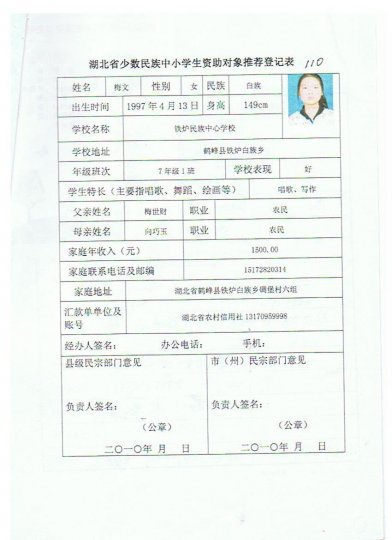 湖北省少数民族中小学生资助对象推荐登记表 110
姓名 梅文 性别 女 民族 白族
出生时间 1997年4月13日 身高 149cm
学校名称 铁炉民族中心学校
学校地址 鹤峰县铁炉白族乡
年级班次 7年级1班 学校表现 好
学生特长（主要指唱歌、舞蹈、绘画等） 唱歌、写作
父亲姓名 梅世财 职业 农民
母亲姓名 向巧玉 职业 农民
家庭年收入（元） 1500.00
家庭联系电话及邮编 15172820314
家庭地址 湖北省鹤峰县铁炉白族乡碉堡村六组
汇款单单位及
账号 湖北省农村信用社13170959998
经办人签名： 办公电话： 手机：
县级民宗部门意见 市（州）民宗部门意见
负责人签名： 负责人签名：
（公章） （公章）
二〇一〇年 月 日 二〇一〇年 月 日